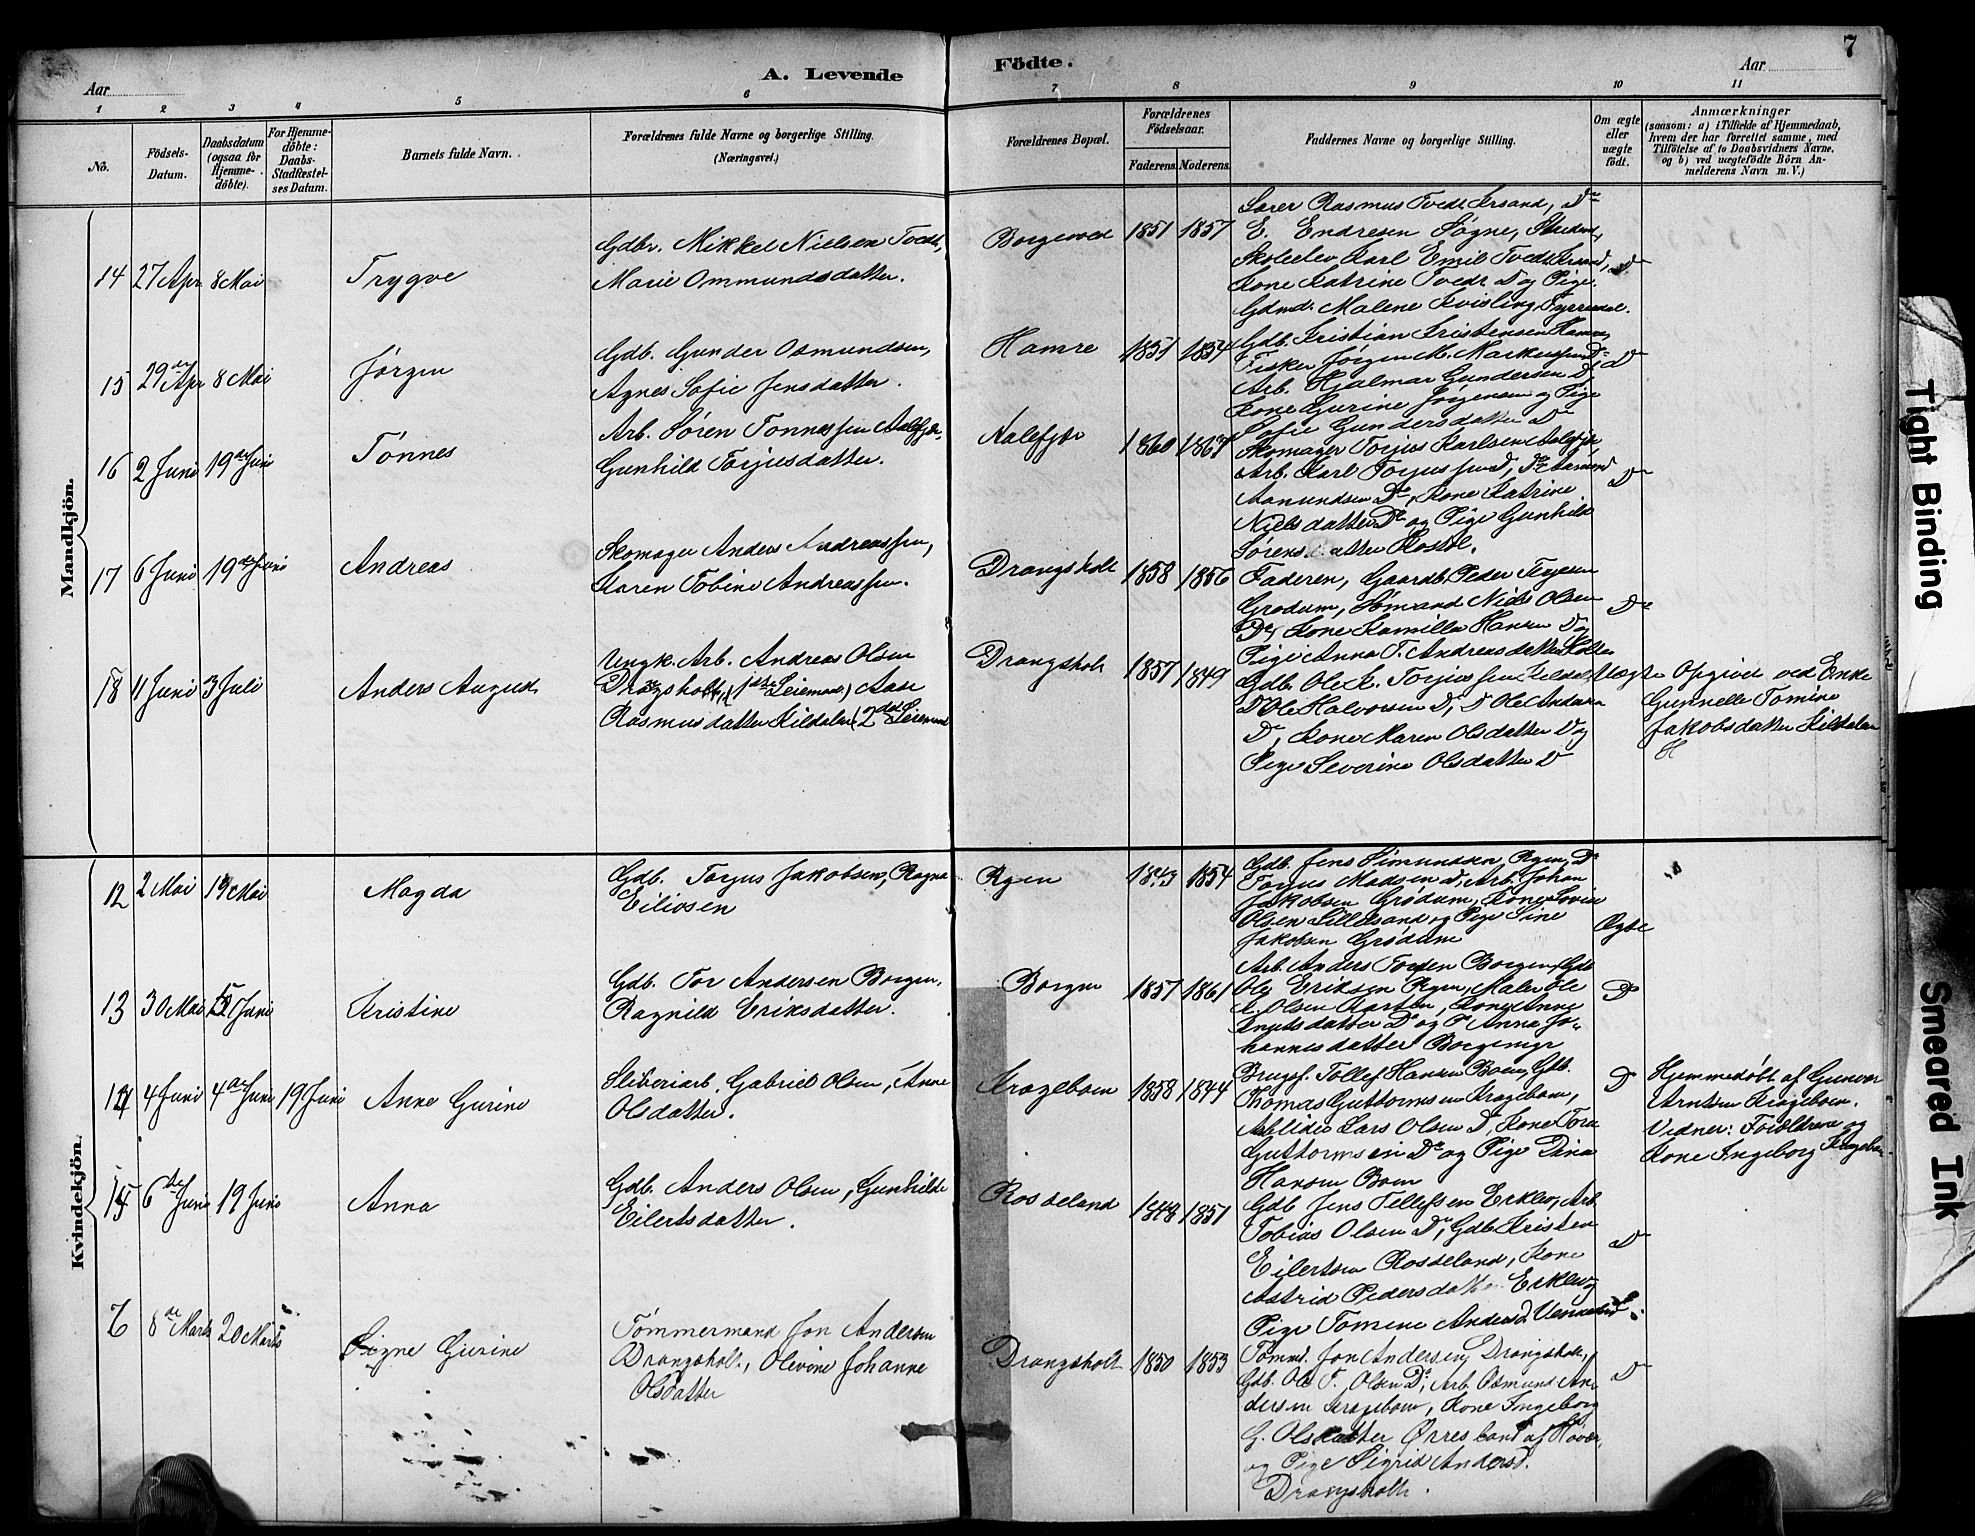 7
A. Levende Födte.
Aar
Aar
1 2 3 4 5 6 7 8 9 10 11
No.
Födsels-Datum.
Daabsdatum (ogsaa for Hjemme-döbte).
For Hjemme-döbte: Daabs-Stadfæstel-ses Datum.
Barnets fulde Navn.
Forældrenes fulde Navne og borgerlige Stilling.
(Næringsvei.)
Forældrenes Bopæl.
Forældrenes Födselsaar.
Faderens. Moderens.
Faddernes Navne og borgerlige Stilling.
Om ægte eller uægte født.
Anmærkninger
(saasom: a) i Tilfælde af Hjemmedaab,
hvem der har forrettet samme, med
Tilföielse af to Daabsvidners Navne,
og b) ved uægtefödte Börn An-
melderens Navn m. V.)
Mandkjön.
14 27 Apr 8 Mai Trygve
Gdbr. Mikkel Nielsen Tvedt,
Marie Ommundsdatter.
1851 1857
Rasmus Tvedt Krsand, Do
E. Endresen Søgne, Student,
Skoleelev Karl Emil Tvedt Krsand,
Kone Katrine Tvedt D og Pige
Gdmd. Malene Kvisling Fyrresdal.
Do
15 29de Apr 8 Mai Jørgen
Gdb. Gunder Osmundsen,
Agnes Sofie Jensdatter.
Hamre 1851 1854
Gdb. Kristian Kristensen Hamre,
Fisker Jørgen M. Markussen Do
Arb. Hjalmar Gundersen D,
Kone Gurine Jørgensen og Pige
Sofie Gundersdatter D
D
16 2 Juni 19de Juni Tønnes
Arb. Søren Tønnessen Aalefjær,
Gunhild Torjusdatter.
Aalefjær 1860 1867
Skomager Torjus Karlsen Aalefjær,
Arb. Karl Torjussen D, Do Aamund
Aanundsen Do, Kone Katrine
Nielsdatter Do og Pige Gunhild
Sørensdatter Kostøl.
D
17 6 Juni 19de Juni Andreas
Skomager Anders Andreassen,
Karen Tobine Andreassen.
Drangsholt 1858 1856
Faderen, Gaardb. Peder Terjesen
Grødum, Sømand Niels Olsen
Do, Kone Kamilla Hansen D og
Pige Anna T. Andreasdatter
Do
18 11 Juni 3 Juli Anders August
Ungk. Arb. Andreas Olsen
Drangsholt, (1ste Leiermaal) Aase
Rasmusdatter Kildalen (2det Leiermaal
Drangsholt 1857 1849
Gdb. Ole K. Torjussen
D Ole Halvorsen D, D Ole Andersen
D, Kone Maren Olsdatter D og
Pige Severine Olsdatter D
Uægte
Opgivet ved Enke
Gunnelle Tomine
Jakobsdatter Kildalen
Kvindekjön.
12 2 Mai 19 Mai Magda
Gdb. Torjus Jakobsen, Ragna
Eilivsen
Rgen 1843 1854
Gdb. Jens Simundsen, Rgen, Do
Torjus Madsen D, Arb. Johan
Jakobsen Grødum, Kone Lovise
Olsen Lillesand og Pige Sine
Jakobsen Grødum
Ægte
13 30 Mai Juni Kristine
Gdb. Tor Andersen Borgen,
Ragnild Eriksdatter.
Borgen 1857 1861
Arb. Anders Torsen Borgen, Gdb
Ole Eriksen Rgen, Maler Ole
Olsen Aarsten, Kone Anne
Knutsdatter Do og P Anna Jo-
hannesdatter Borgemyr
Do
14 4 Juni 4de Juni 19 Juni Anne Gurine
Sliberiarb. Gabriel Olsen, Anne
Olsdatter.
Kragebom 1858 1844
Brugsf. Tollef Hansen Boen, Gdb.
Thomas Guttormsen Kragebom,
Lars Olsen D, Kone Tora
Guttormsen Do og Pige Dina
Hansen Boen
D
Hjemmedøbt af Gunvor
Arntsen Kragebom.
Vidner: Forældrene og
Kone Ingeborg Kragebom
15 6de Juni 19 Juni Anna
Gdb. Anders Olsen, Gunhilde
Eilertsdatter.
Rosseland 1848 1851
Gdb Jens Tellefsen Erklev, Arb
Tobias Olsen Do, Gdb Kristen
Eilertsen Rosseland, Kone
Astrid Pedersdatter Erklev og
Pige Tomine Andersd.
D
8de Marts 20 Marts Signe Gurine
Tømmermand Jon Andersen
Drangsholt, Olevine Johanne
Olsdatter
Drangsholt 1850 1853
Tømmd. Jon Andersen, Drangsholt,
Gdb. Ole T. Olsen Do, Arb. Osmund An-
dersen Kragebom, Kone Ingeborg
G. Olsdatter Ørresland af Høvåg,
og Pige Sigrid Andersd.
Drangsholt.
D
Tight Binding
Smeared Ink